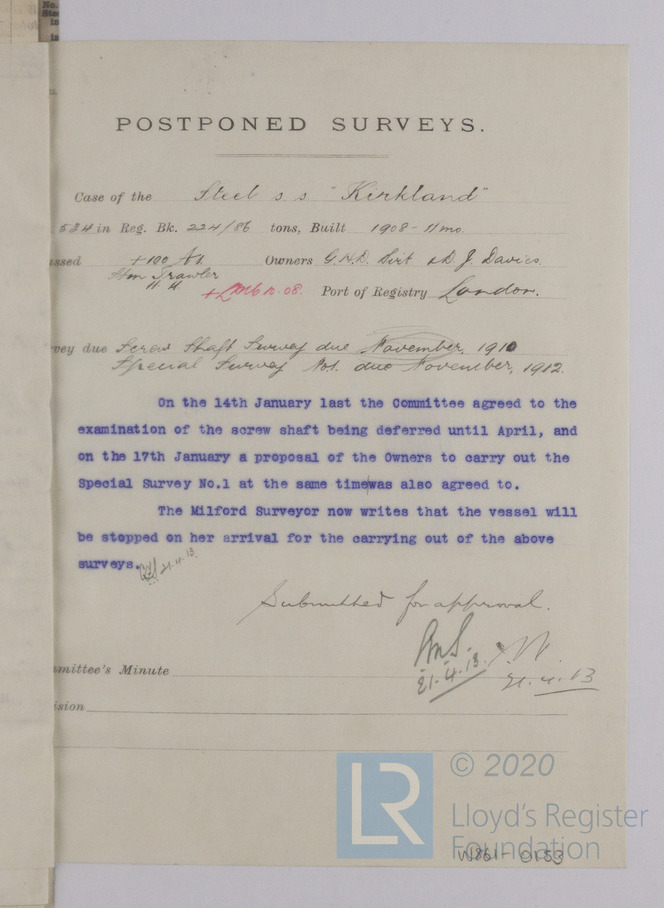 POSTPONED SURVEYS.
Case of the Steel s s "Kirkland"
534 in Reg. Bk. 224/86 tons, Built 1908-11mo.
ssed +100 A1 Owners G.H.D. Birt & D. J. Davies.
Stm Trawler
+LMC 11.08. Port of Registry London.
vey due Screw Shaft Survey due November, 1910
Special Survey No1. due November, 1912.
On the 14th January last the Committee agreed to the
examination of the screw shaft being deferred until April, and
on the 17th January a proposal of the Owners to carry out the
Special Survey No.1 at the same time was also agreed to.
The Milford Surveyor now writes that the vessel will
be stopped on her arrival for the carrying out of the above
surveys. 21.4.13
Submitted for approval.
21.4.13. 21.4.13
mmittee's Minute
ision
© 2020
LR
Lloyd's Register
Foundation
W861-0153